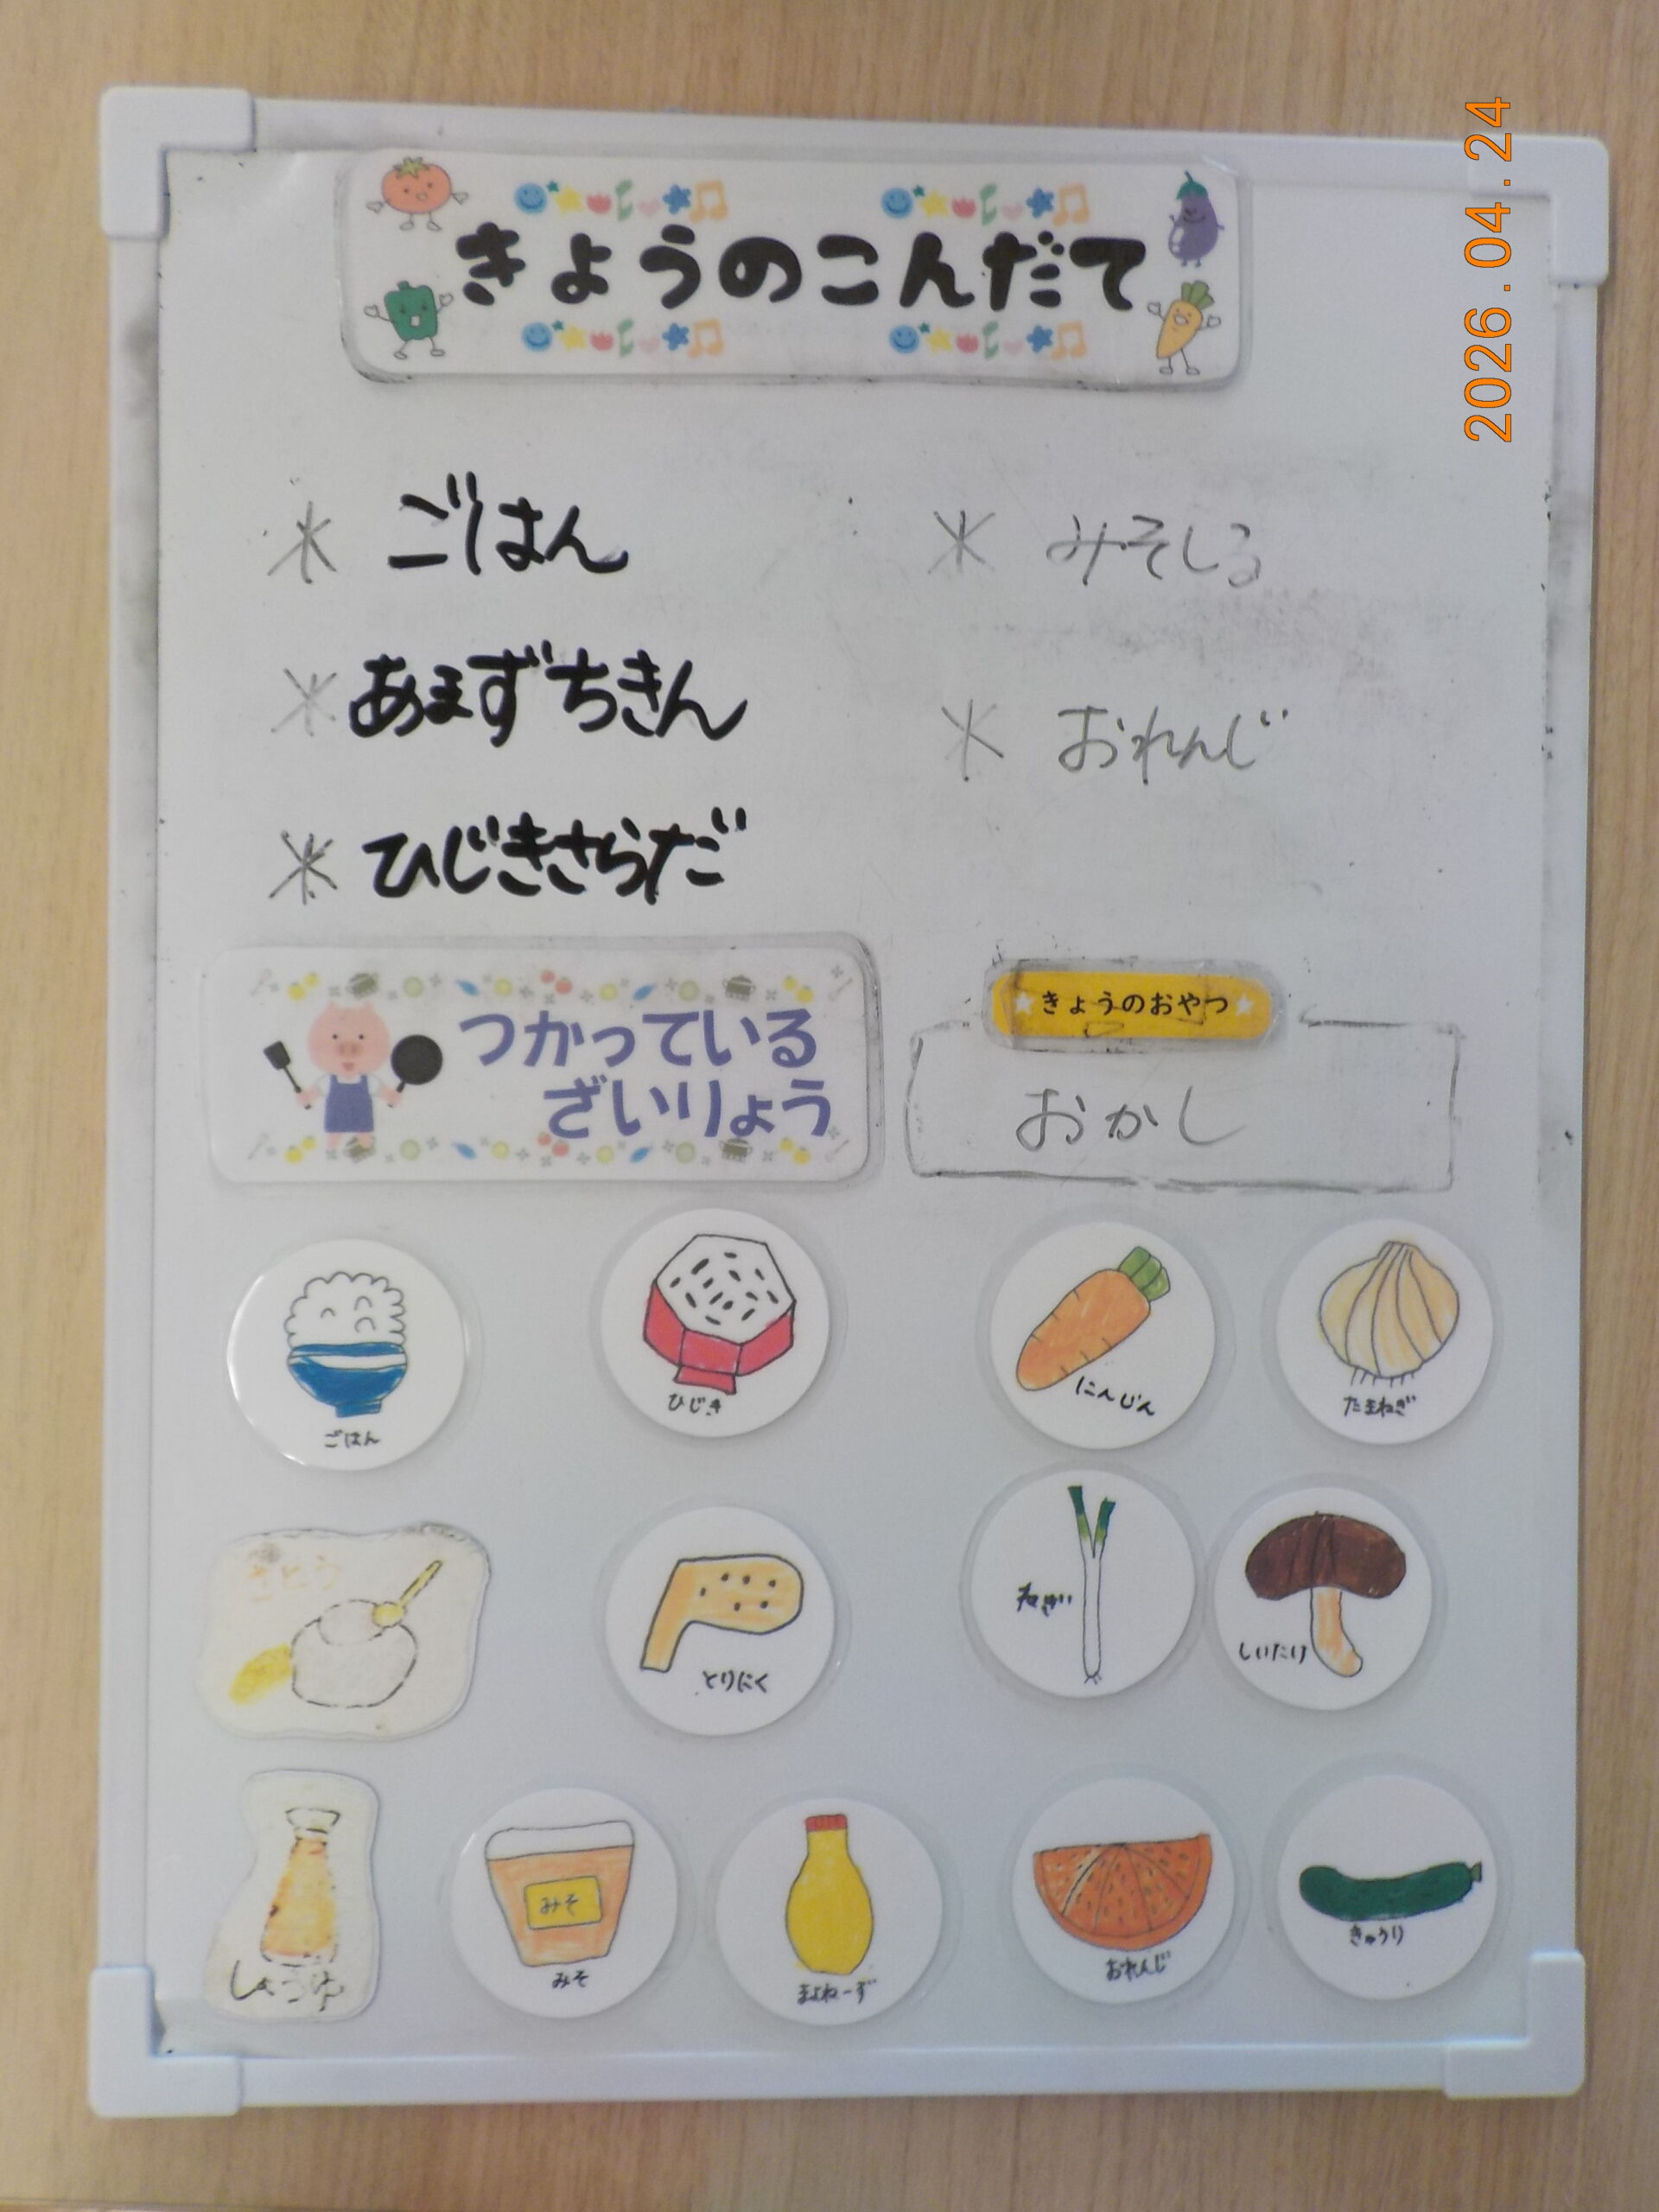 きょうのこんだて
2026.04.24
＊ ごはん
＊ あまずちきん
＊ ひじきさらだ
＊ みそしる
＊ おれんじ
つかっている
ざいりょう
きょうのおやつ
おかし
ごはん
ひじき
にんじん
たまねぎ
さとう
とりにく
ねぎ
しいたけ
しょうゆ
みそ
みそ
まよねーず
おれんじ
きゅうり